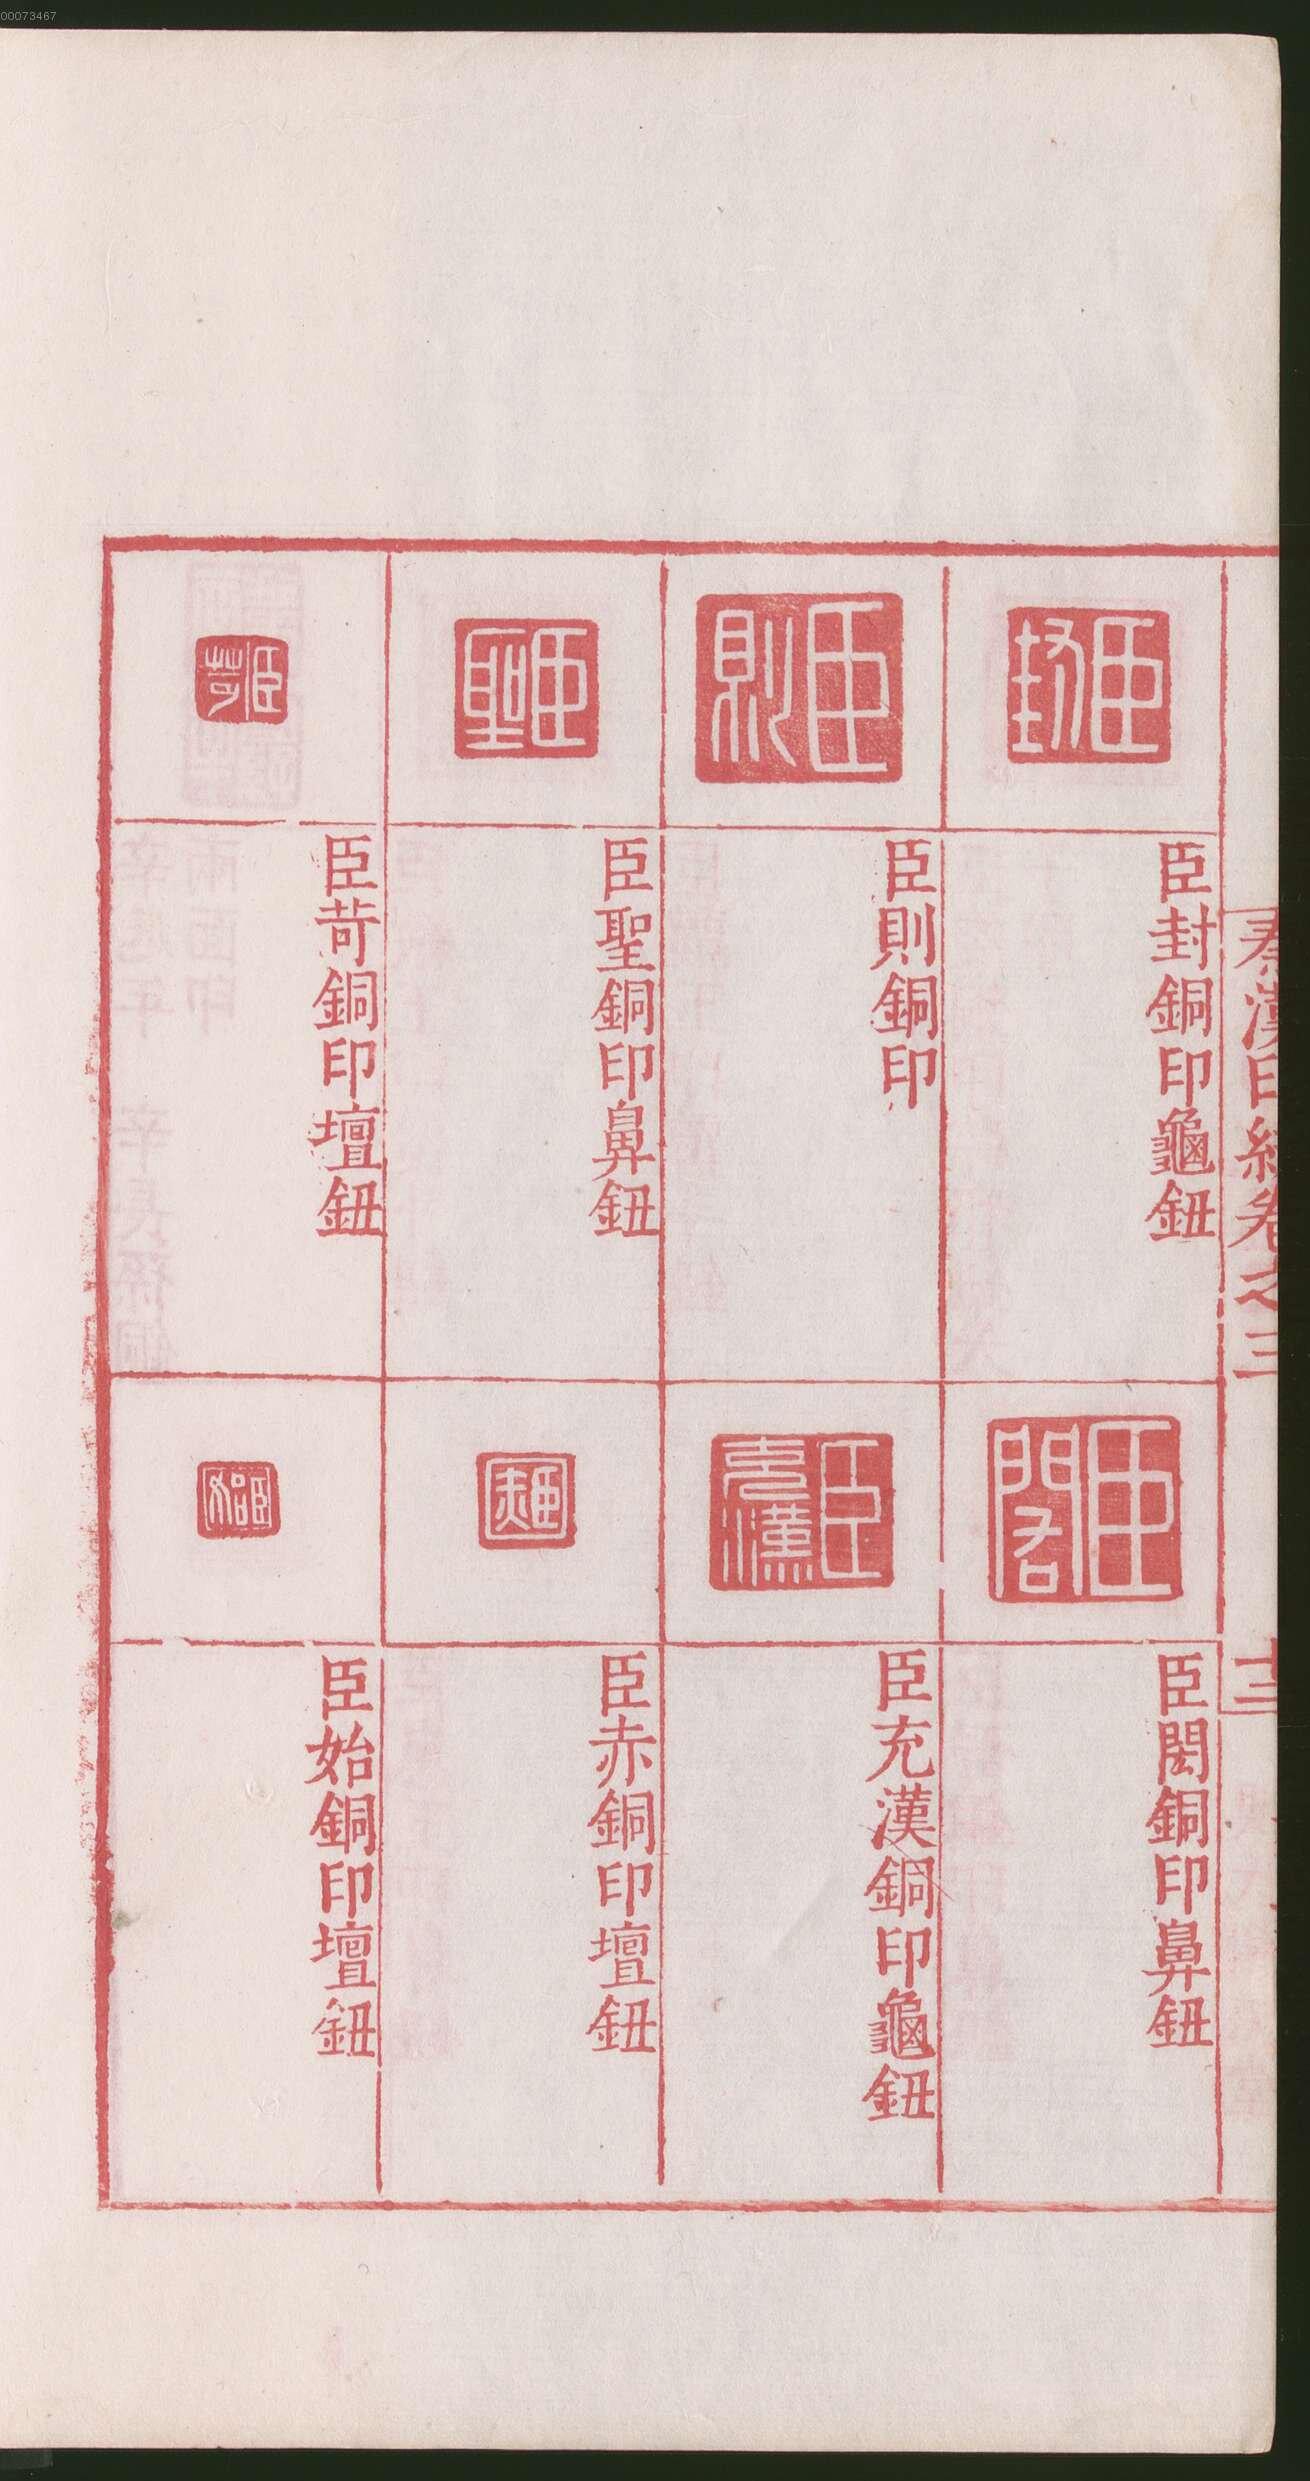 00073467
秦漢印統卷之三
十三
臣封
臣封銅印龜鈕
臣則
臣則銅印
臣聖
臣聖銅印鼻鈕
臣苛
臣苛銅印壇鈕
臣閎銅印鼻鈕
臣充漢
臣充漢銅印龜鈕
臣赤
臣赤銅印壇鈕
臣始
臣始銅印壇鈕